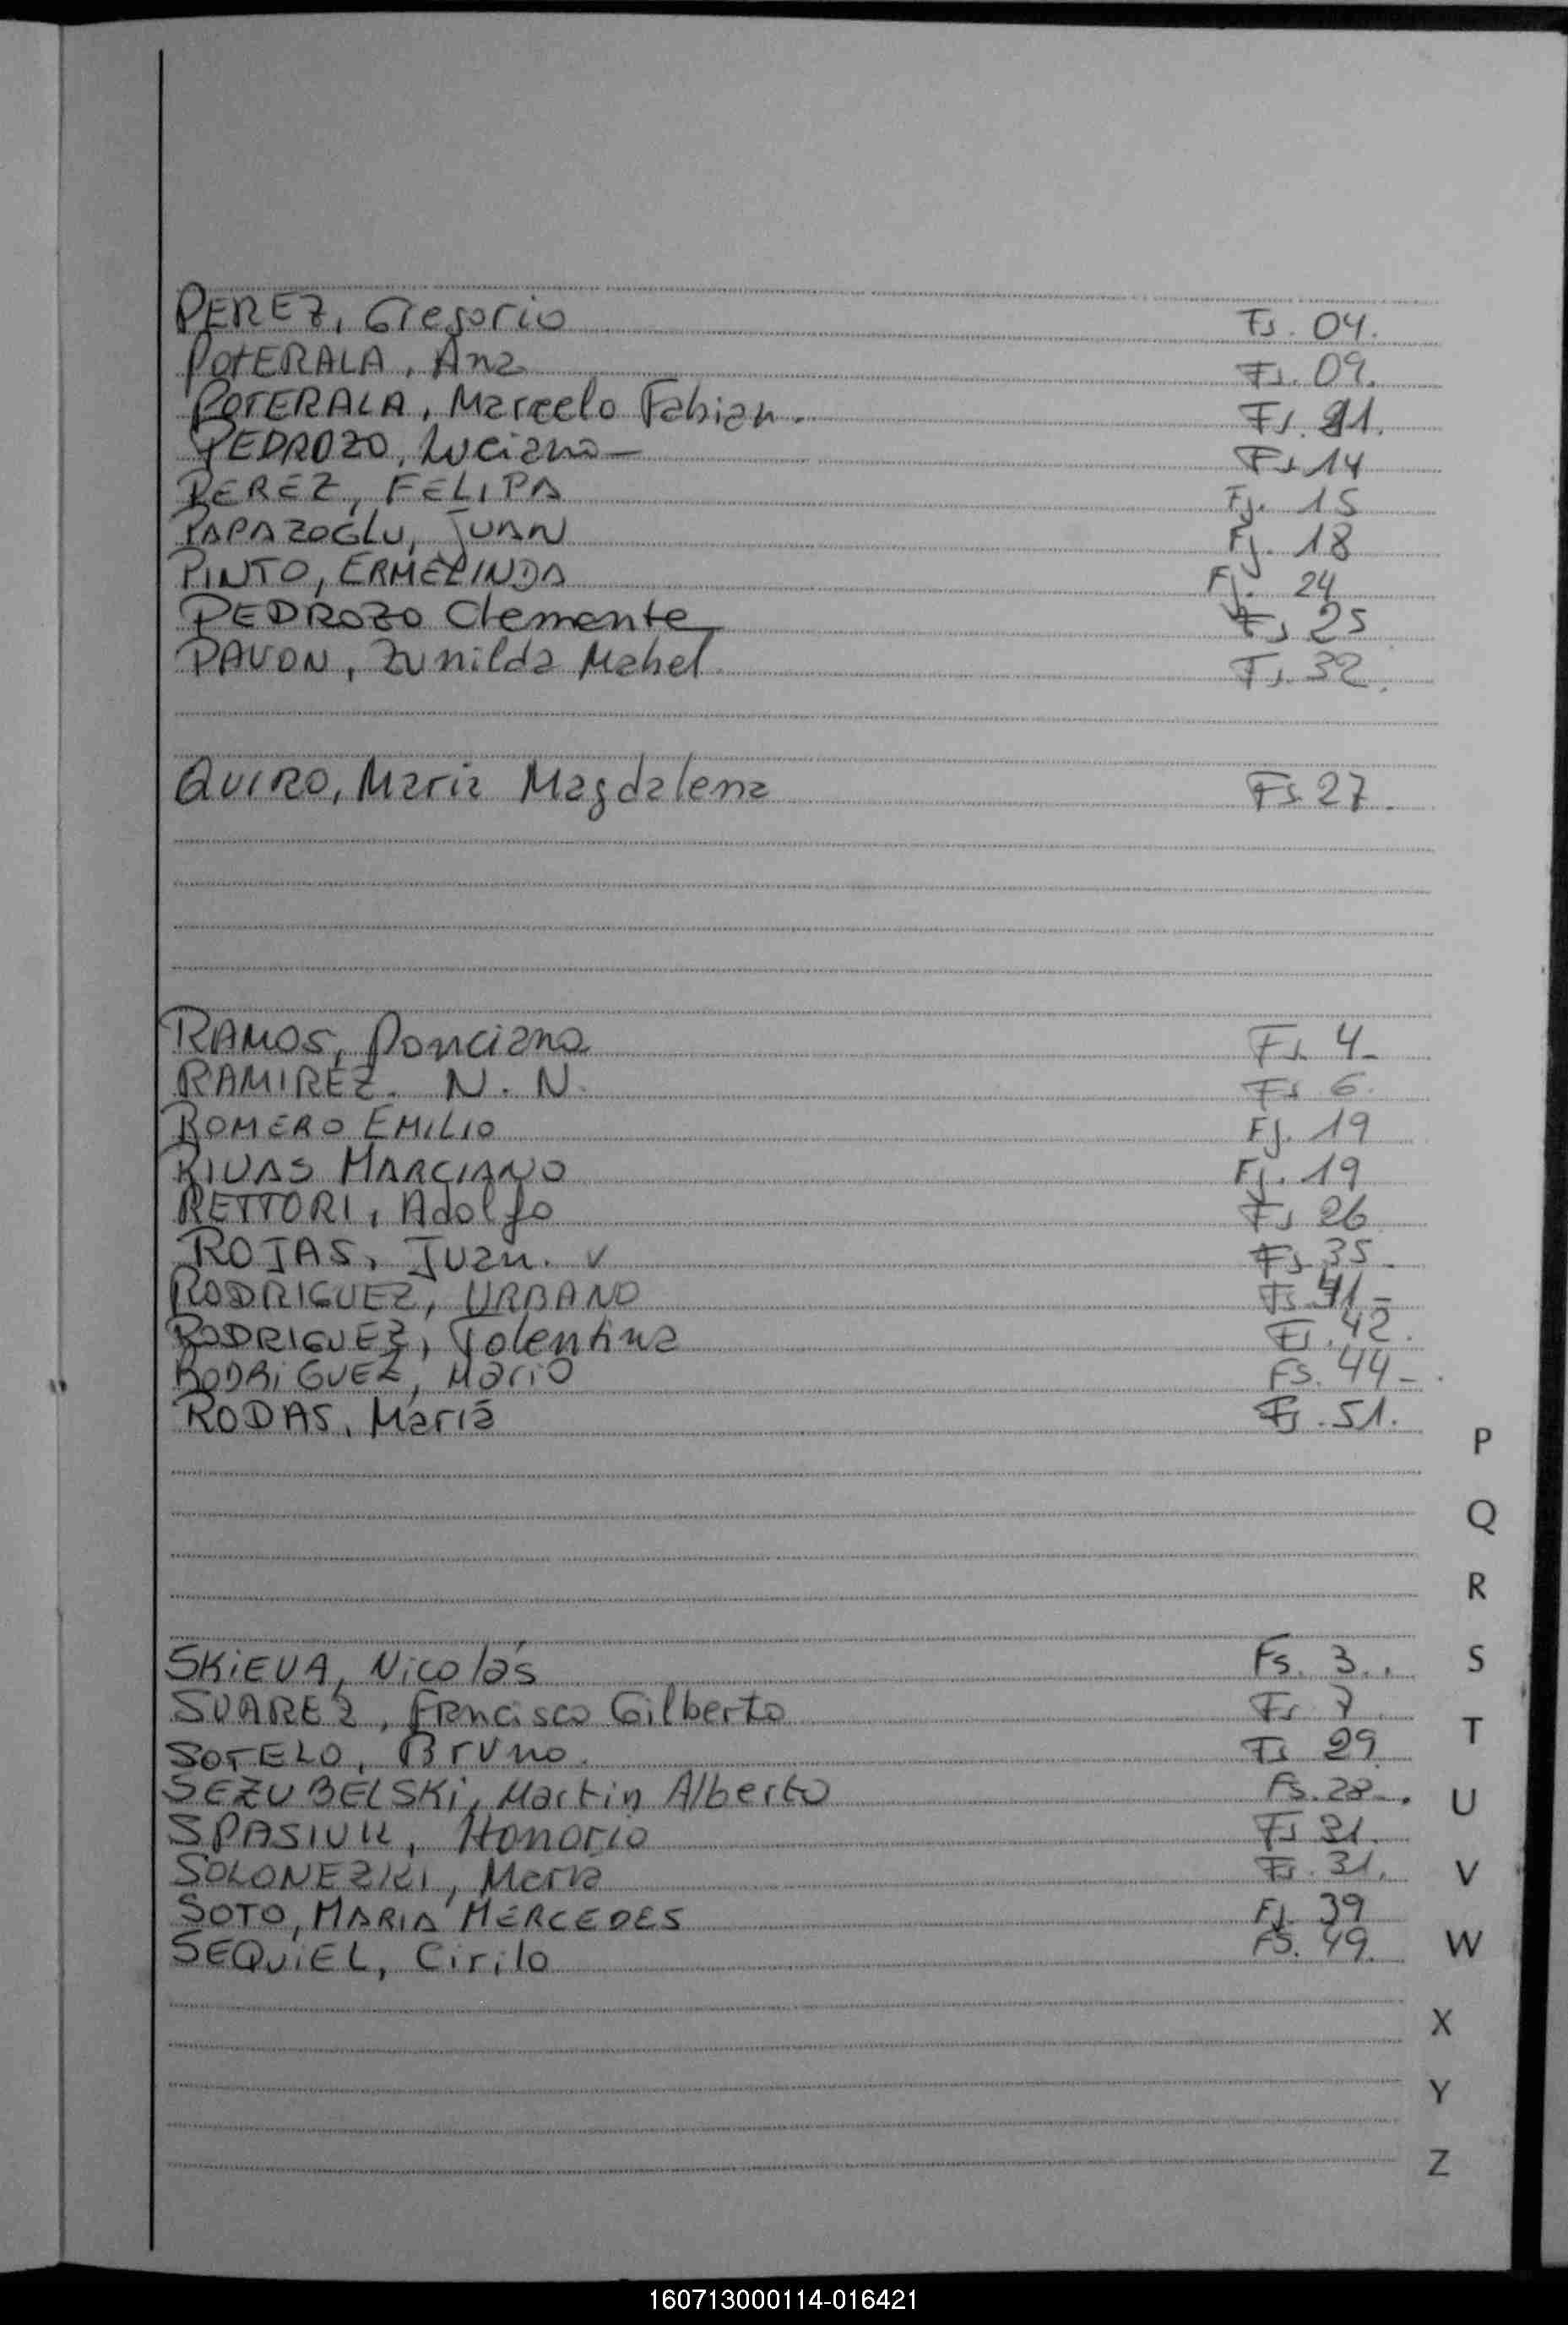 PEREZ, Gregorio Fs. 04.
PoTERALA, Ana Fs. 09.
POTERALA, Marcelo Fabian. Fs. 11.
PEDROZO, Luciano— Fs 14
PEREZ, FELIPA Fj. 15
PAPAZOGLU, JUAN Fj. 18
PINTO, ERMELINDA Fj. 24
PEDROZO Clemente Fs 25
PAVON, Zunilda Mabel Fs. 32.
QUIRO, Maria Magdalena Fs 27.
RAMOS, Ponciana Fs. 4-
RAMIREZ. N. N. Fs 6.
ROMERO EMILIO Fj. 19
RIVAS MARCIANO Fj. 19
RETTORI, Adolfo Fs 26
ROJAS, Juan. v Fs 35-
RODRIGUEZ, URBANO Fs 41-
RODRIGUEZ, Tolentina Fs. 42.
RODRiGUEZ, Mario FS. 44-.
RODAS, María Fs. 51.
P
Q
R
SKiEVA, Nicolás Fs. 3.. S
SUAREZ, Francisco Gilberto Fs 7
T
SOTELO, Bruno. Fs 29
SEZUBELSKi, Martin Alberto Fs. 28-. U
SPASIUK, Honorio Fs 31.
SOLONEZKI, Maria Fs. 31. V
SOTO, MARIA MERCEDES Fj. 39
SEQUiEL, Cirilo FS. 49. W
X
Y
Z
160713000114-016421